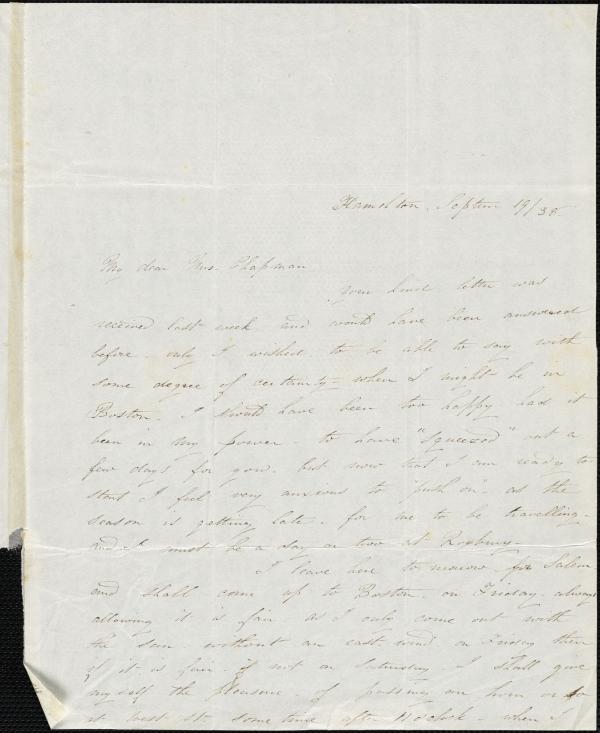 Hamilton. Septem 19/38
My dear Mrs. Chapman
your kind letter was
received last week and would have been answered
before - only I wished to be able to say with
some degree of certainty - when I might be in
Boston - I should have been too happy had it
been in my power - to have "squeezed" out a
few days for you. but now that I am ready to
start I feel very anxious to "push on" - as the
season is getting late - for me to be travelling -
and I must be a day or two at Roxbury -
I leave here to morrow for Salem
and shall come up to Boston on Friday - always
allowing it is fair - as I only come out with
the sun without an east wind - on Friday then
if it is fair - if not on Saturday - I shall give
my self the pleasure - of passing an hour or so
at West St. some time after o'clock - when I